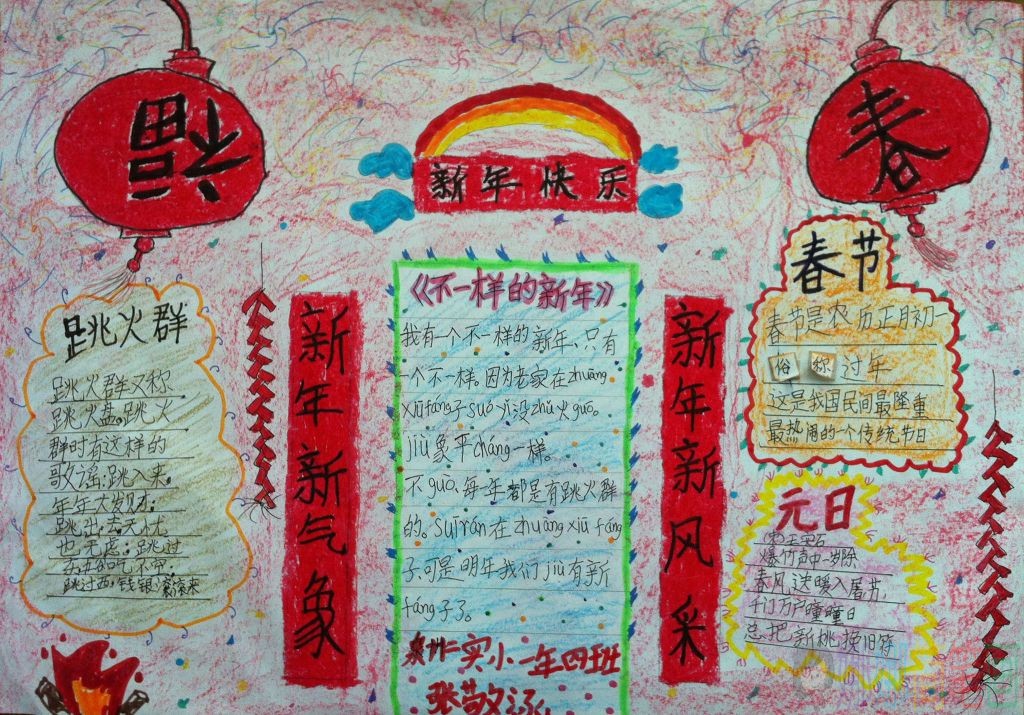 福
春
新年快乐
跳火群
跳火群又称
跳火盆。跳火
群时有这样的
歌谣:跳入来。
年年大发财;
跳出去无忧
也无虑;跳过
跳过西,钱银滚滚来
新年新气象
《不一样的新年》
我有一个不一样的新年、只有
一个不一样。因为老家在zhuāng
xiū fáng子suǒ yǐ没zhù火guō。
jiù象平cháng一样。
不guò、每一年都是有跳火群
的。suī rán在zhuāng xiū fáng
子、可是明年我们jiù有新
fáng子了。
泉州仁实小一年四班
新年新风采
春节
春节是农历正月初一
俗称过年
这是我国民间最隆重
最热闹的一个传统节日
元日
爆竹声中一岁除
春风送暖入屠苏
千门万户曈曈日
总把新桃换旧符